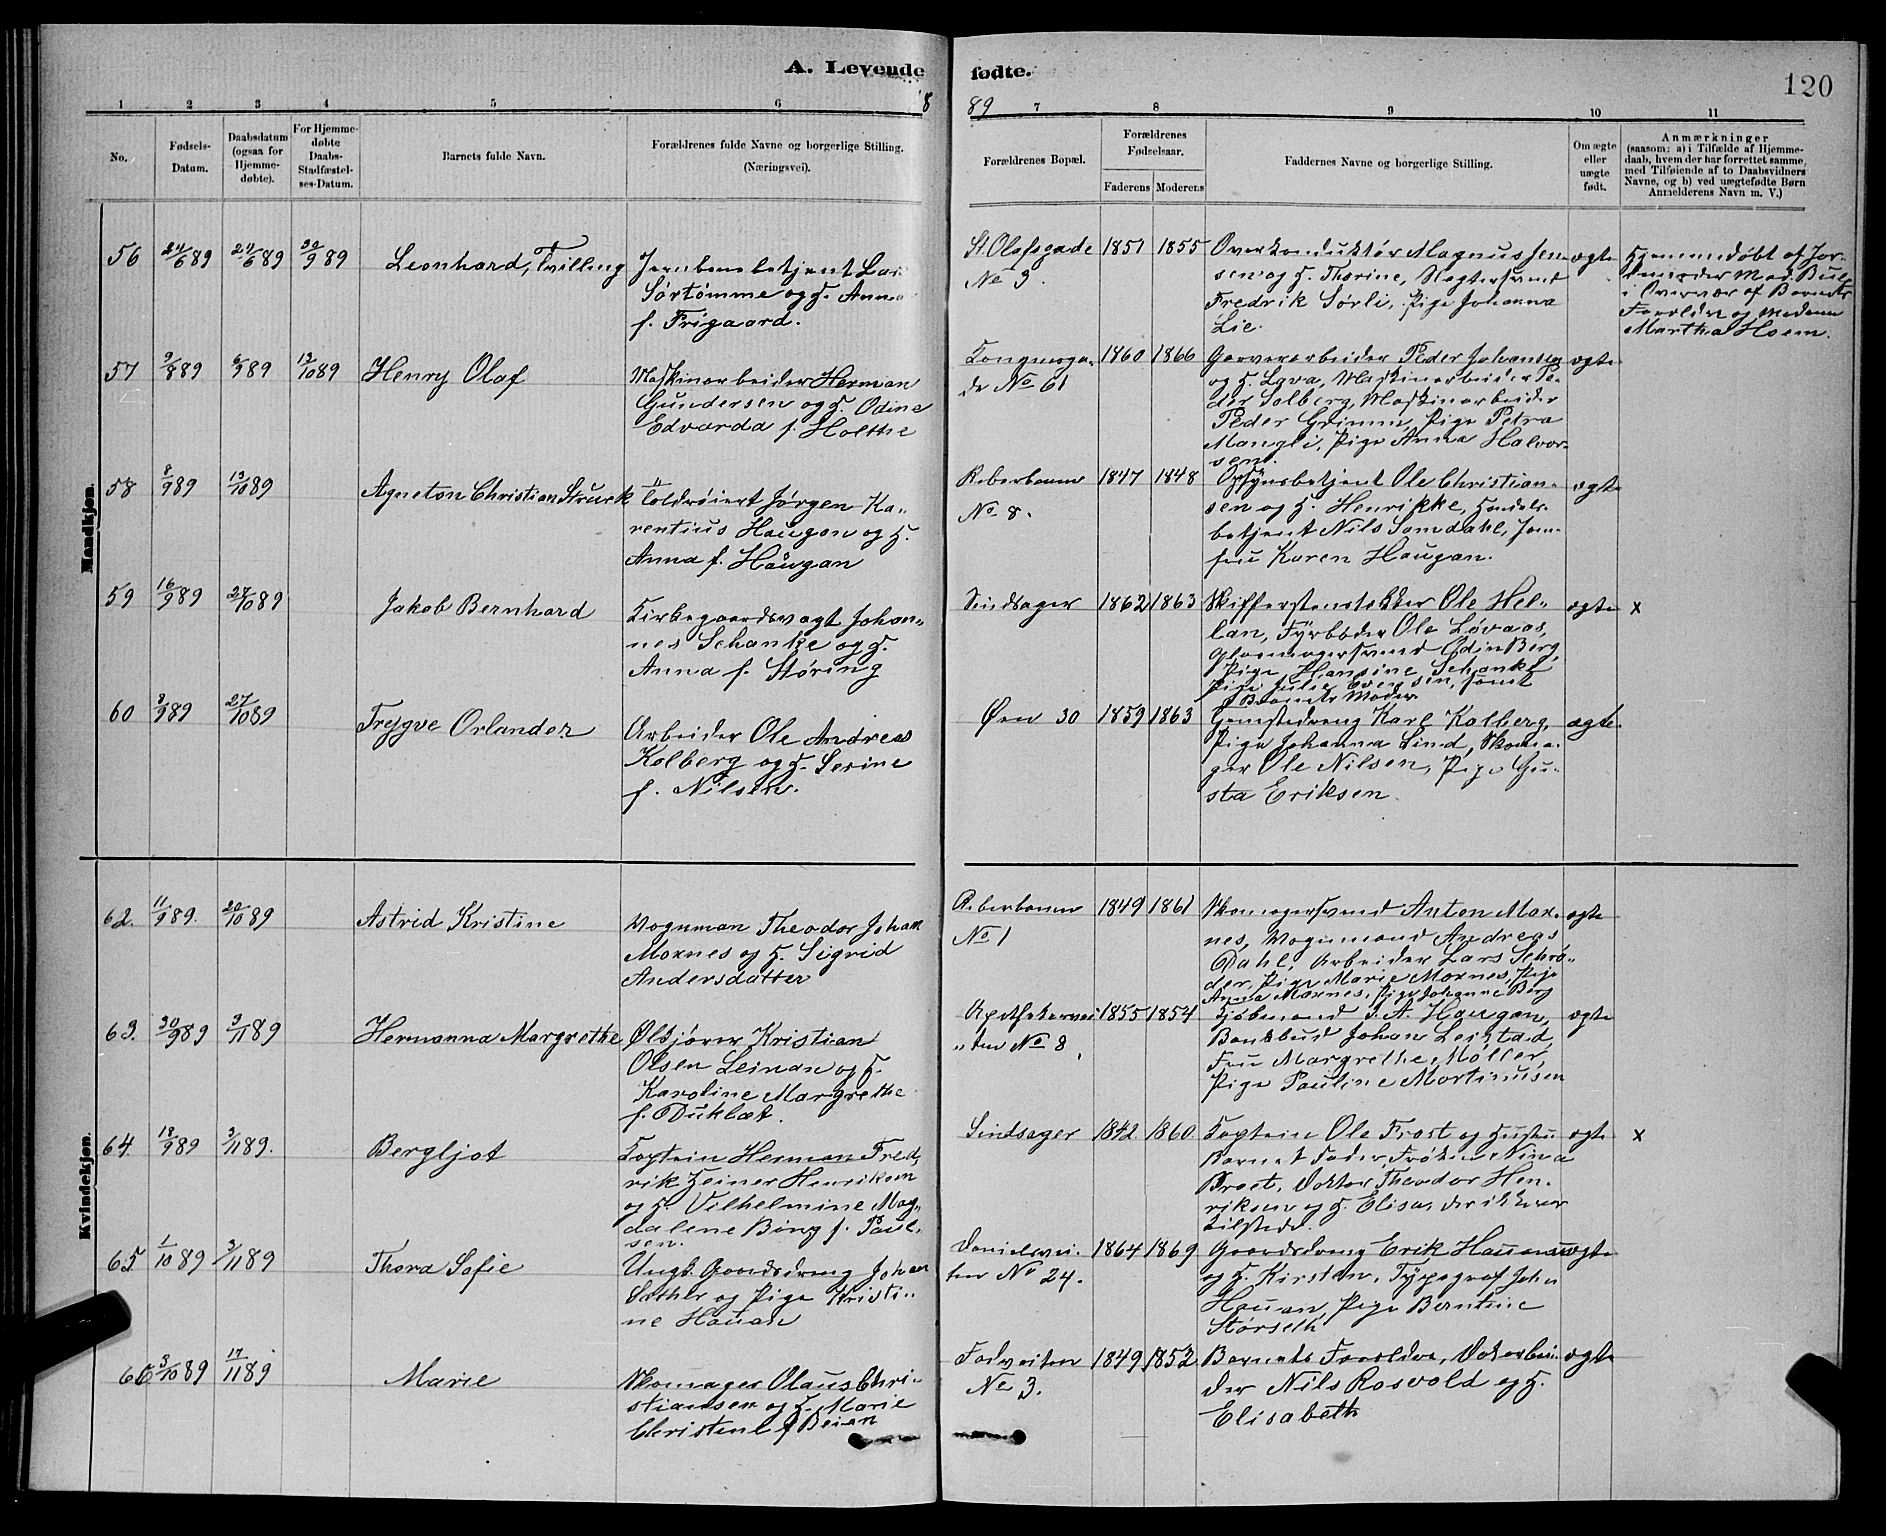 A. Levende fødte.
1889
120
1 2 3 4 5 6 7 8 9 10 11
No.
Fødsels-Datum.
Daabsdatum (ogsaa for Hjemme-døbte).
For Hjemme-døbte Daabs-Stadfæstel-ses-Datum.
Barnets fulde Navn.
Forældrenes fulde Navne og borgerlige Stilling. (Næringsvei).
Forældrenes Bopæl.
Forældrenes Fødselsaar.
Faderens Moderens
Faddernes Navne og borgerlige Stilling.
Om ægte eller uægte født.
Anmærkninger
(saasom: a) i Tilfælde af Hjemme-
daab, hvem der har forrettet samme,
med Tilføiende af to Daabsvidners
Navne, og b) ved uægtefødte Børn
Anmelderens Navn m. V.)
Mandkjøn.
56 24/6 89 24/6 89 30/9 89
Leonhard, Tvilling
Jernbanebetjent Lar
Sörtömme og H. Anna
f. Frigaard.
St. Olafsgade
No 3.
1851 1855
Overkonduktör Magnus Jen-
sen og H. Thorine, Slagtersvend
Fredrik Sörli, Pige Johanna
Lie.
ægte
Hjemmedöbt af Jor-
demoder Mad. Bul
i Overvær af Barnets
Foreldre og Madame
Martha Hoem.
57 9/8 89 6/9 89 13/10 89
Henry Olaf
Maskinarbeider Herman
Gundersen og H. Odine
Edvarda f. Holthe
Kongensga-
de No 61
1860 1866
Garverarbeider Peder Johansen
og H. Lava, Maskinarbeider Pe-
der Solberg, Maskinarbeider
Peder Grimm, Pige Petra
Mangli, Pige Anna Halvor-
sen.
ægte
58 8/9 89 13/10 89
Agneton Christian Strunk
Toldröiert Jörgen Ka-
rentius Haugan og H.
Anna f. Haugan
Reberbanen
No 8.
1847 1848
Opsynsbetjent Ole Christian-
sen og H. Henrikke, Handels-
betjent Nils Samdahl, Jom-
fru Karen Haugan.
ægte
59 16/9 89 27/10 89
Jakob Bernhard
Kirkegaardsvagt Johan-
nes Schanke og H.
Anna f. Störing
Sindsager
1862 1863
Skifferstenstækker Ole Hel-
lan, Fyrböder Ole Lövaas,
Glasmagersvend Odin Berg,
Pige Hansine Schanke
Pige Julie Evensen, samt
Barnets Moder
ægte x
60 8/9 89 27/10 89
Trygve Orlander
Arbeider Ole Andreas
Kolberg og H. Serine
f. Nilsen.
Øen 30
1859 1863
Tjenestedreng Karl Kolberg,
Pige Johanna Lind, Skoma-
ger Ole Nilsen, Pige Gu-
sta Eriksen.
ægte
Kvindekjøn.
62. 11/9 89. 20/10 89
Astrid Kristine
Vognman Theodor Johan
Moxnes og H. Sigrid
Andersdatter
Reberbanen
No 1
1849 1861
Skomagersvend Anton Mox-
nes, Vognmand Andreas
Dahl, Arbeider Lars Schrö-
der, Pige Marie Moxnes, Pige
Anna Moxnes, Pige Johanne Berg
ægte
63. 30/9 89 3/11 89
Hermanna Margrethe
Ölkjörer Kristian
Olsen Leinan og H.
Karoline Margrethe
f. Duklæt.
Apothekervei-
ten No 8
1855 1854
Kjöbmand J. A. Haugan,
Bankbud Johan Leistad,
Fru Margrethe Möller,
Pige Pauline Martinusen
ægte
64. 18/9 89 3/11 89.
Bergljot
Kaptein Herman Fred-
rik Zeiner Henriksen
og H. Vilhelmine Mag-
dalene Bing f. Paul-
sen.
Sindsager
1842 1860
Kaptein Ole Frost og Hustru
Barnets Fader, Fröken Nina
Broct, Doktor Theodor Hen-
riksen og H. Elisa, der ikke var
tilstede.
ægte x
65. 1/10 89 3/11 89
Thora Sofie
Ungk. Gaardsdreng Johan
Sæther og Pige Kristi-
ne Hauan
Danielsvei-
ten No 24.
1864 1869
Gaardsdreng Erik Hauan
og H. Kirsten, Typograf John
Hauan, Pige Berntine
Störseth
uægte
66 3/10 89 17/11 89
Marie
Skomager Olaus Chri-
stiansen og H. Marie
Christine f Beian
Fadveiten
No 3.
1849 1852
Barnets Foreldre, Dokarbei-
der Nils Rosvold og H.
Elisabeth
ægte